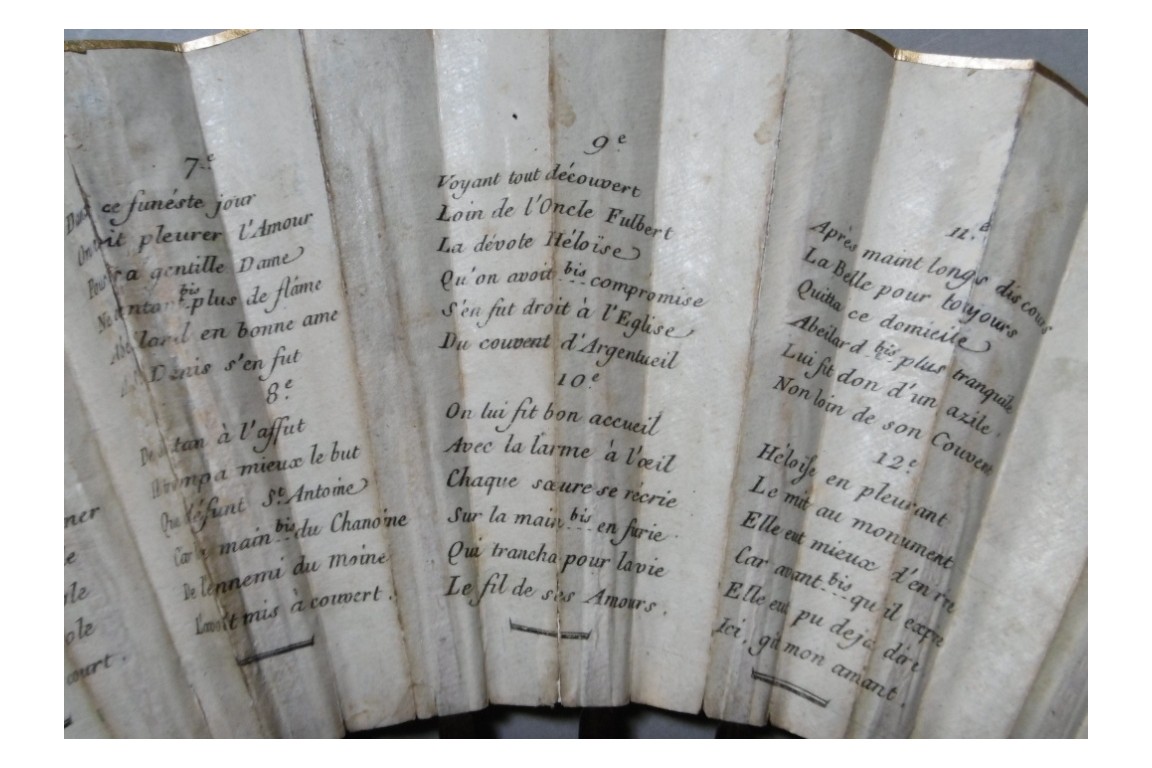 ner
le
ole
ole
court.
7.e
Dans ce funéste jour
On vit pleurer l'Amour
Pour sa gentille Dame
N'etant bis plus de fláme
Abeilard en bonne ame
A St Denis s'en fut
8.e
De Satan à l'affut
Il trompa mieux le but
Que défunt St. Antoine
Car la main bis du Chanoine
De l'ennemi du moine
L'avoit mis à couvert.
9.e
Voyant tout découvert
Loin de l'Oncle Fulbert
La dévote Héloïse
Qu'on avoit bis compromise
S'en fut droit à l'Eglise
Du couvent d'Argentueil
10.e
On lui fit bon accueil
Avec la larme à l'œil
Chaque sœure se récrie
Sur la main bis en furie
Qui trancha pour la vie
Le fil de ses Amours.
11.e
Après maint longs discours
La Belle pour toujours
Quitta ce domicile
Abeilard bis plus tranquile
Lui fit don d'un azile.
Non loin de son Couvent
12.e
Héloïse en pleurant
Le mit au monument
Elle eut mieux d'en rire
Car avant bis qu'il expire
Elle eut pu deja dire
Ici, git mon amant.